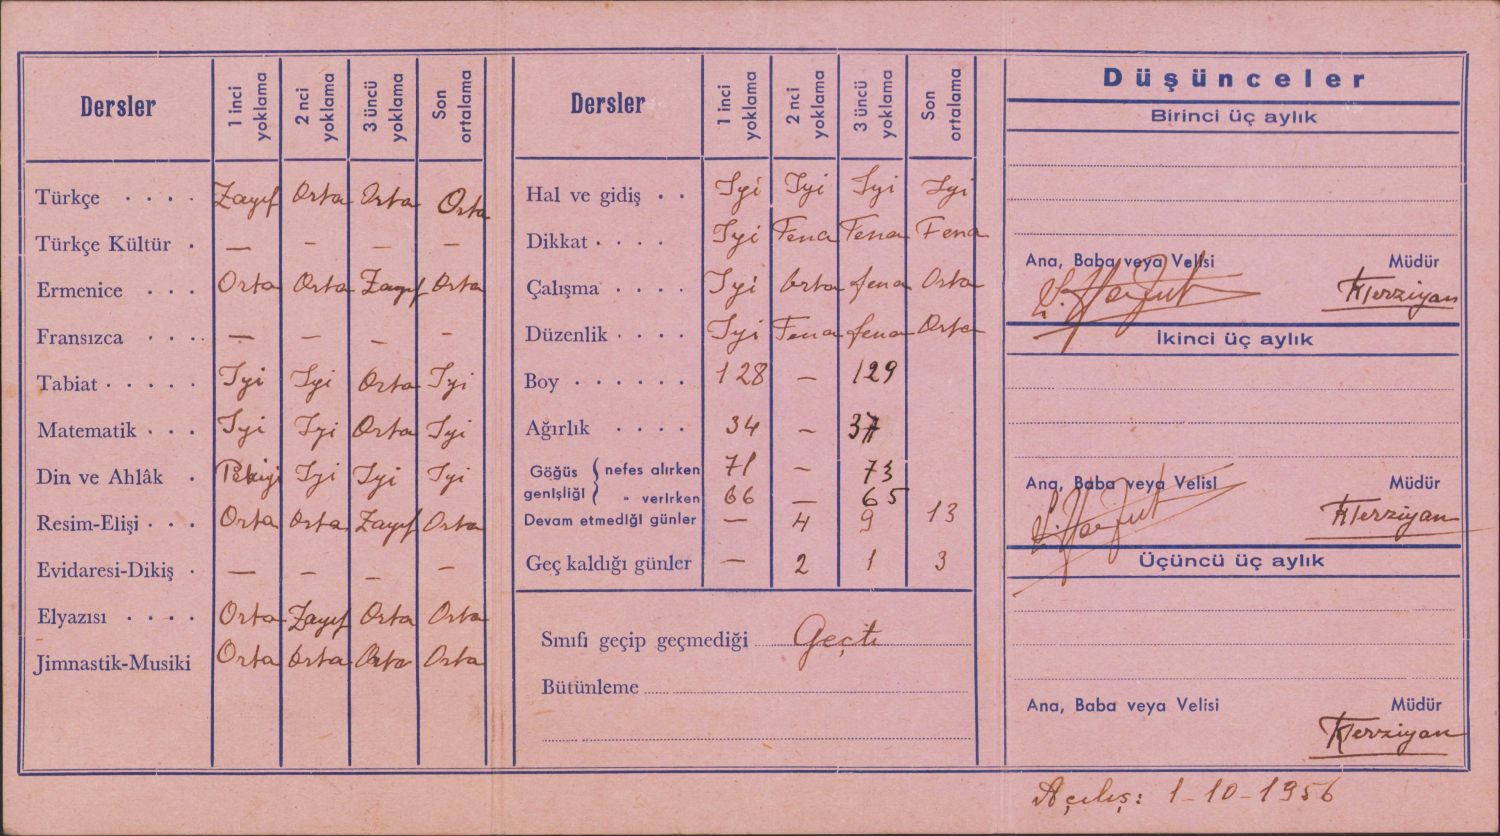 Dersler 1 inci yoklama 2 nci yoklama 3 üncü yoklama Son ortalama
Türkçe . . . . Zayıf Orta Orta Orta
Türkçe Kültür . — — — —
Ermenice . . . Orta Orta Zayıf Orta
Fransızca . . . . — — — —
Tabiat . . . . . İyi İyi Orta İyi
Matematik . . . İyi İyi Orta İyi
Din ve Ahlâk . Pekiyi İyi İyi İyi
Resim-Elişi . . . Orta Orta Zayıf Orta
Evidaresi-Dikiş . — — — —
Elyazısı . . . . Orta Zayıf Orta Orta
Jimnastik-Musiki Orta Orta Orta Orta
Dersler 1 inci yoklama 2 nci yoklama 3 üncü yoklama Son ortalama
Hal ve gidiş . . İyi İyi İyi İyi
Dikkat . . . . İyi Fena Fena Fena
Çalışma . . . . İyi Orta fena Orta
Düzenlik . . . . İyi Fena fena Orta
Boy . . . . . . 128 — 129
Ağırlık . . . . 34 — 37
Göğüs genişliği { nefes alırken 71 — 73
" verirken 66 — 65
Devam etmediği günler — 4 9 13
Geç kaldığı günler — 2 1 3
Sınıfı geçip geçmediği Geçti
Bütünleme
Düşünceler
Birinci üç aylık
Ana, Baba veya Velisi Müdür
KTerziyan
İkinci üç aylık
Ana, Baba veya Velisi Müdür
KTerziyan
Üçüncü üç aylık
Ana, Baba veya Velisi Müdür
KTerziyan
Açılış: 1-10-1956